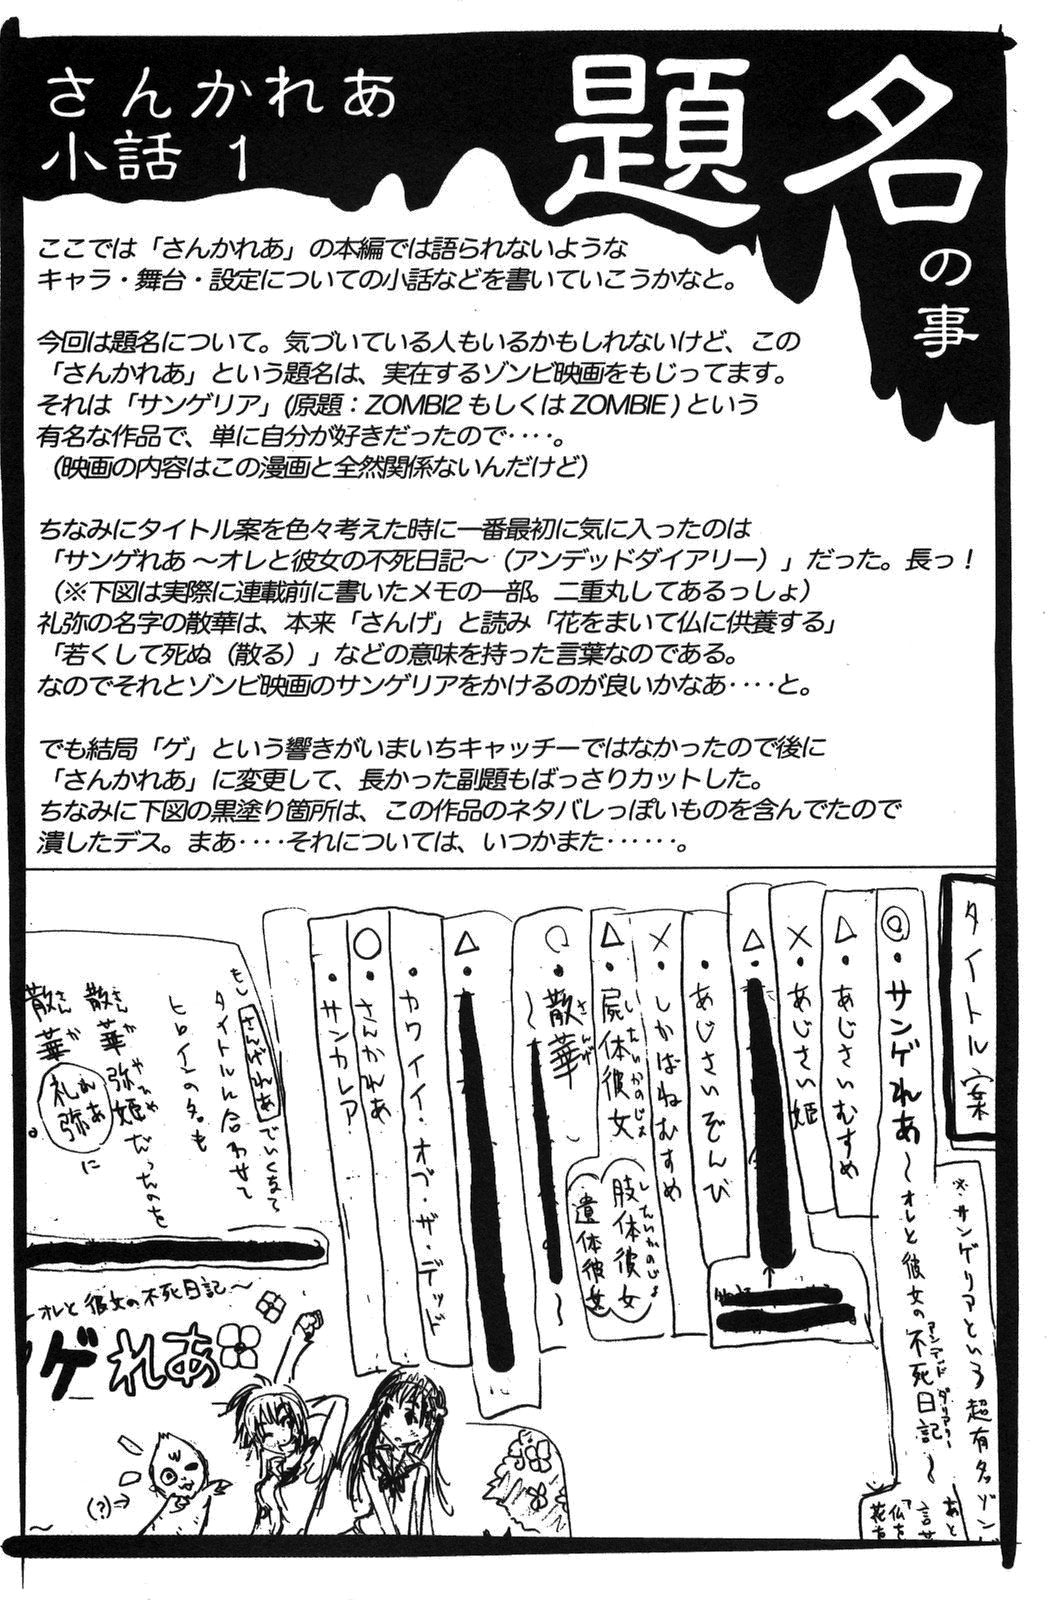 さんかれあ
小話 1
題名の事
ここでは「さんかれあ」の本編では語られないような
キャラ・舞台・設定についての小話などを書いていこうかなと。
今回は題名について。気づいている人もいるかもしれないけど、この
「さんかれあ」という題名は、実在するゾンビ映画をもじってます。
それは「サンゲリア」(原題：ZOMBI2 もしくは ZOMBIE) という
有名な作品で、単に自分が好きだったので‥‥。
（映画の内容はこの漫画と全然関係ないんだけど）
ちなみにタイトル案を色々考えた時に一番最初に気に入ったのは
「サンゲれあ ～オレと彼女の不死日記～（アンデッドダイアリー）」だった。長っ！
（※下図は実際に連載前に書いたメモの一部。二重丸してあるっしょ）
礼弥の名字の散華は、本来「さんげ」と読み「花をまいて仏に供養する」
「若くして死ぬ（散る）」などの意味を持った言葉なのである。
なのでそれとゾンビ映画のサンゲリアをかけるのが良いかなあ‥‥と。
でも結局「ゲ」という響きがいまいちキャッチーではなかったので後に
「さんかれあ」に変更して、長かった副題もばっさりカットした。
ちなみに下図の黒塗り箇所は、この作品のネタバレっぽいものを含んでたので
潰したデス。まあ‥‥それについては、いつかまた‥‥‥。
タイトル案
※・サンゲリアという超有名ゾン
あと
◎・サンゲれあ～オレと彼女の不死日記～
アンデッドダイアリー
△・あじさいむすめ
×・あじさい姫
△・
・あじさいぞんび
×・しかばねむすめ
△・屍体彼女
したいかのじょ
肢体彼女
したいかのじょ
遺体彼女
○・散華
さんげ
～
～
△・
・カワイイ・オブ・ザ・デッド
○・さんかれあ
・サンカレア
もし「さんげれあ」でいくなら
タイトルに合わせて
ヒロインの名も
散華弥姫だったのを
さんか
散華礼弥に
さんか
れあ
～オレと彼女の不死日記～
ゲれあ
(?)→